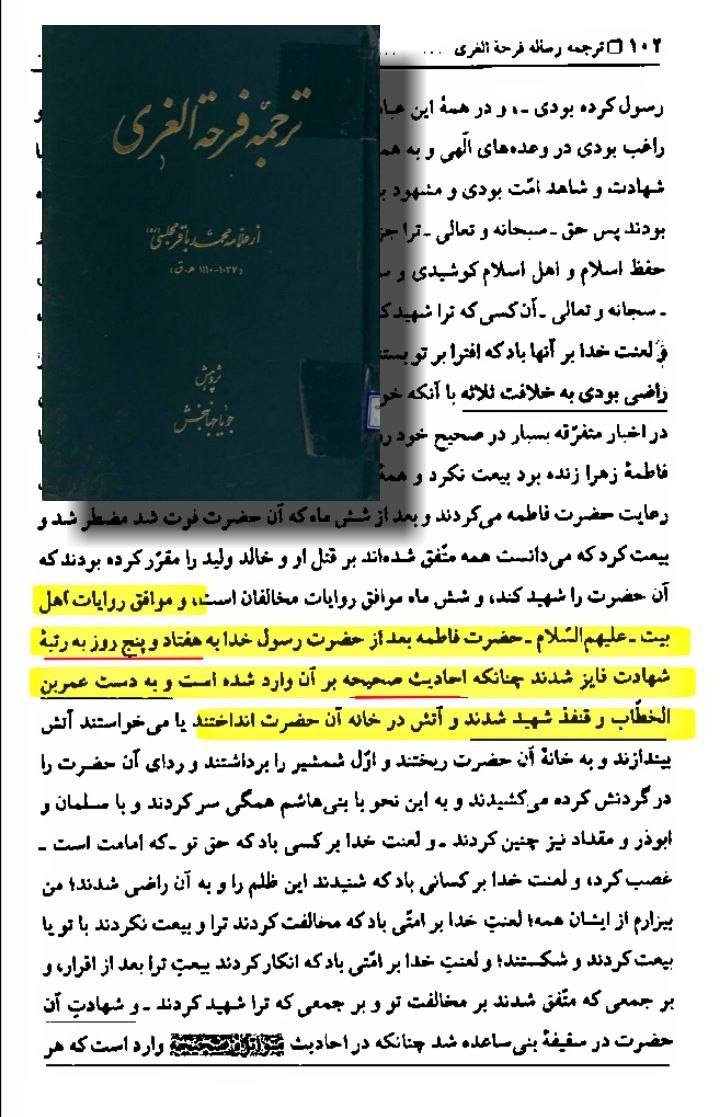 ۱۰۲ □ ترجمه رساله فرحة الغری
ترجمهٔ فرحة الغری
از علامه محمد باقر مجلسی (ره)
(۱۰۳۷-۱۱۱۰ ه.ق)
پژوهش
جویا جهانبخش
رسول کرده بودی -، و در همهٔ این
راغب بودی در وعده‌های الٓهی و به
شهادت و شاهد امّت بودی و مشهود
بودند پس حق -سبحانه و تعالی -ترا
حفظ اسلام و اهل اسلام کوشیدی و
- سبحانه و تعالی -آن کسی که ترا شهید
و لعنت خدا بر آنها باد که افترا بر تو
راضی بودی به خلافت ثلاثه با آنکه
در اخبار متفرّقه بسیار در صحیح خود
فاطمهٔ زهرا زنده بود بیعت نکرد و همهٔ
رعایت حضرت فاطمه می‌کردند و بعد از شش ماه که آن حضرت فوت شد مضطر شد و
بیعت کرد که می‌دانست همه متّفق شده‌اند بر قتل او و خالد ولید را مقرّر کرده بودند که
آن حضرت را شهید کند، و شش ماه موافق روایات مخالفان است، و موافق روایات اهل
بیت -علیهم السّلام -حضرت فاطمه بعد از حضرت رسول خدا به هفتاد و پنج روز به رتبهٔ
شهادت فایز شدند چنانکه احادیث صحیحه بر آن وارد شده است و به دست عمربن
الخطّاب و قنفذ شهید شدند و آتش در خانه آن حضرت انداختند یا می‌خواستند آتش
بیندازند و به خانهٔ آن حضرت ریختند و اوّل شمشیر را برداشتند و ردای آن حضرت را
در گردنش کرده می‌کشیدند و به این نحو با بنی‌هاشم همگی سر کردند و با سلمان و
ابوذر و مقداد نیز چنین کردند -و لعنت خدا بر کسی باد که حق تو -که امامت است -
غصب کرد، و لعنت خدا بر کسانی باد که شنیدند این ظلم را و به آن راضی شدند؛ من
بیزارم از ایشان همه؛ لعنتِ خدا بر امتّی باد که مخالفت کردند ترا و بیعت نکردند با تو یا
بیعت کردند و شکستند؛ و لعنتِ خدا بر امّتی باد که انکار کردند بیعتِ ترا بعد از اقرار، و
بر جمعی که متّفق شدند بر مخالفت تو و بر جمعی که ترا شهید کردند -و شهادتِ آن
حضرت در سقیفهٔ بنی‌ساعده شد چنانکه در احادیث وارد است که هر